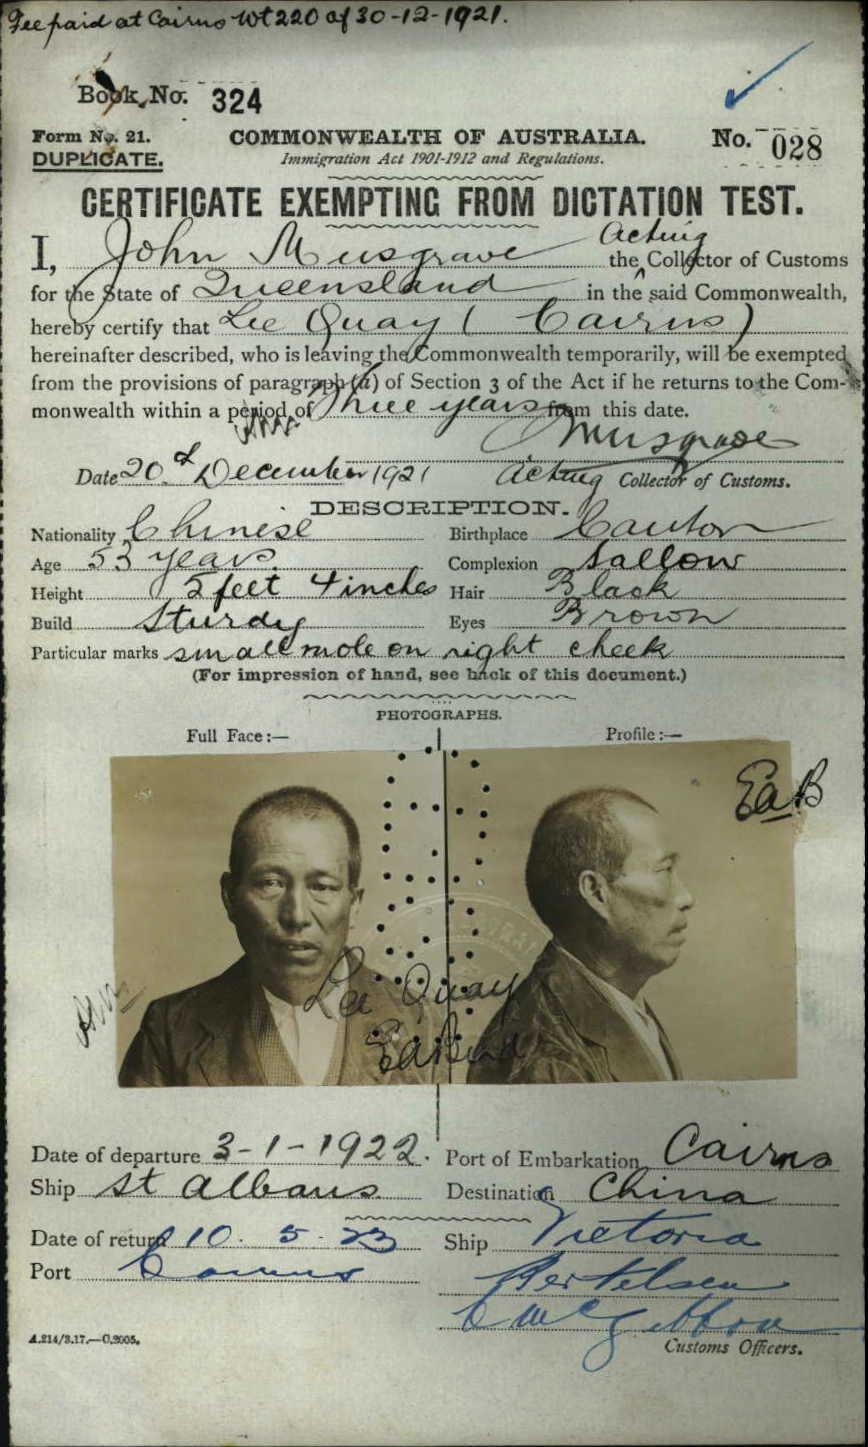 Fee paid at Cairns Wt 220 of 30-12-1921.
Book No. 324
Form No. 21. COMMONWEALTH OF AUSTRALIA. No. 028
DUPLICATE. Immigration Act 1901-1912 and Regulations.
CERTIFICATE EXEMPTING FROM DICTATION TEST.
Acting
I, John Musgrave the Collector of Customs
for the State of Queensland in the said Commonwealth,
hereby certify that Lee Quay (Cairns)
hereinafter described, who is leaving the Commonwealth temporarily, will be exempted
from the provisions of paragraph (a) of Section 3 of the Act if he returns to the Com-
monwealth within a period of Three years from this date.
Musgrave
Date 20 December 1921 Acting Collector of Customs.
DESCRIPTION.
Nationality Chinese Birthplace Canton
Age 53 years. Complexion Sallow
Height 5 feet 4 inches Hair Black
Build Sturdy Eyes Brown
Particular marks small mole on right cheek
(For impression of hand, see back of this document.)
PHOTOGRAPHS.
Full Face:— Profile:—
Lee Quay
Date of departure 3-1-1922. Port of Embarkation Cairns
Ship St Albans Destination China
Date of return 10.5.23 Ship Victoria
Port Cairns
Customs Officers.
A.214/3.17.—C.2005.